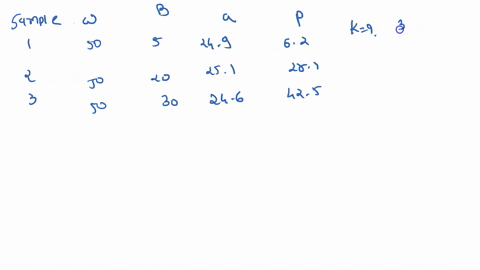 Sample W B a P
1 50 5 24.9 6.2 K=9. 3
2 50 20 25.1 28.1
3 50 30 24.6 42.5